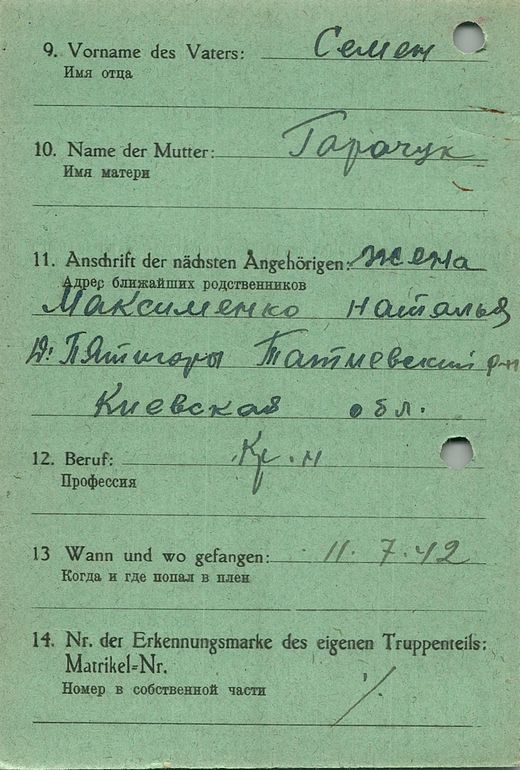 9. Vorname des Vaters: Семен
Имя отца
10. Name der Mutter: Гарачук
Имя матери
11. Anschrift der nächsten Angehörigen: жена
Адрес ближайших родственников
Максименко Наталья
Д: Пятигоры Татиевский р-н
Киевская обл.
12. Beruf: Кр.н
Профессия
13 Wann und wo gefangen: 11.7.42
Когда и где попал в плен
14. Nr. der Erkennungsmarke des eigenen Truppenteils:
Matrikel=Nr.
Номер в собственной части